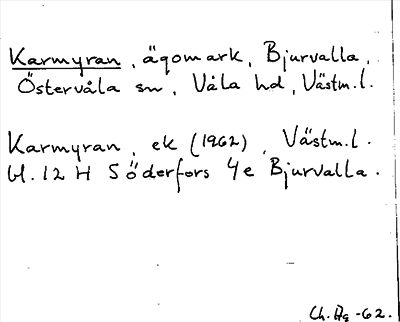 Karmyran, ägomark, Bjurvalla,
Östervåla sn, Våla hd, Västm.l.
Karmyran, ek (1962), Västm.l.
bl. 12 H Söderfors 4e Bjurvalla.
Ch. Hg -62.